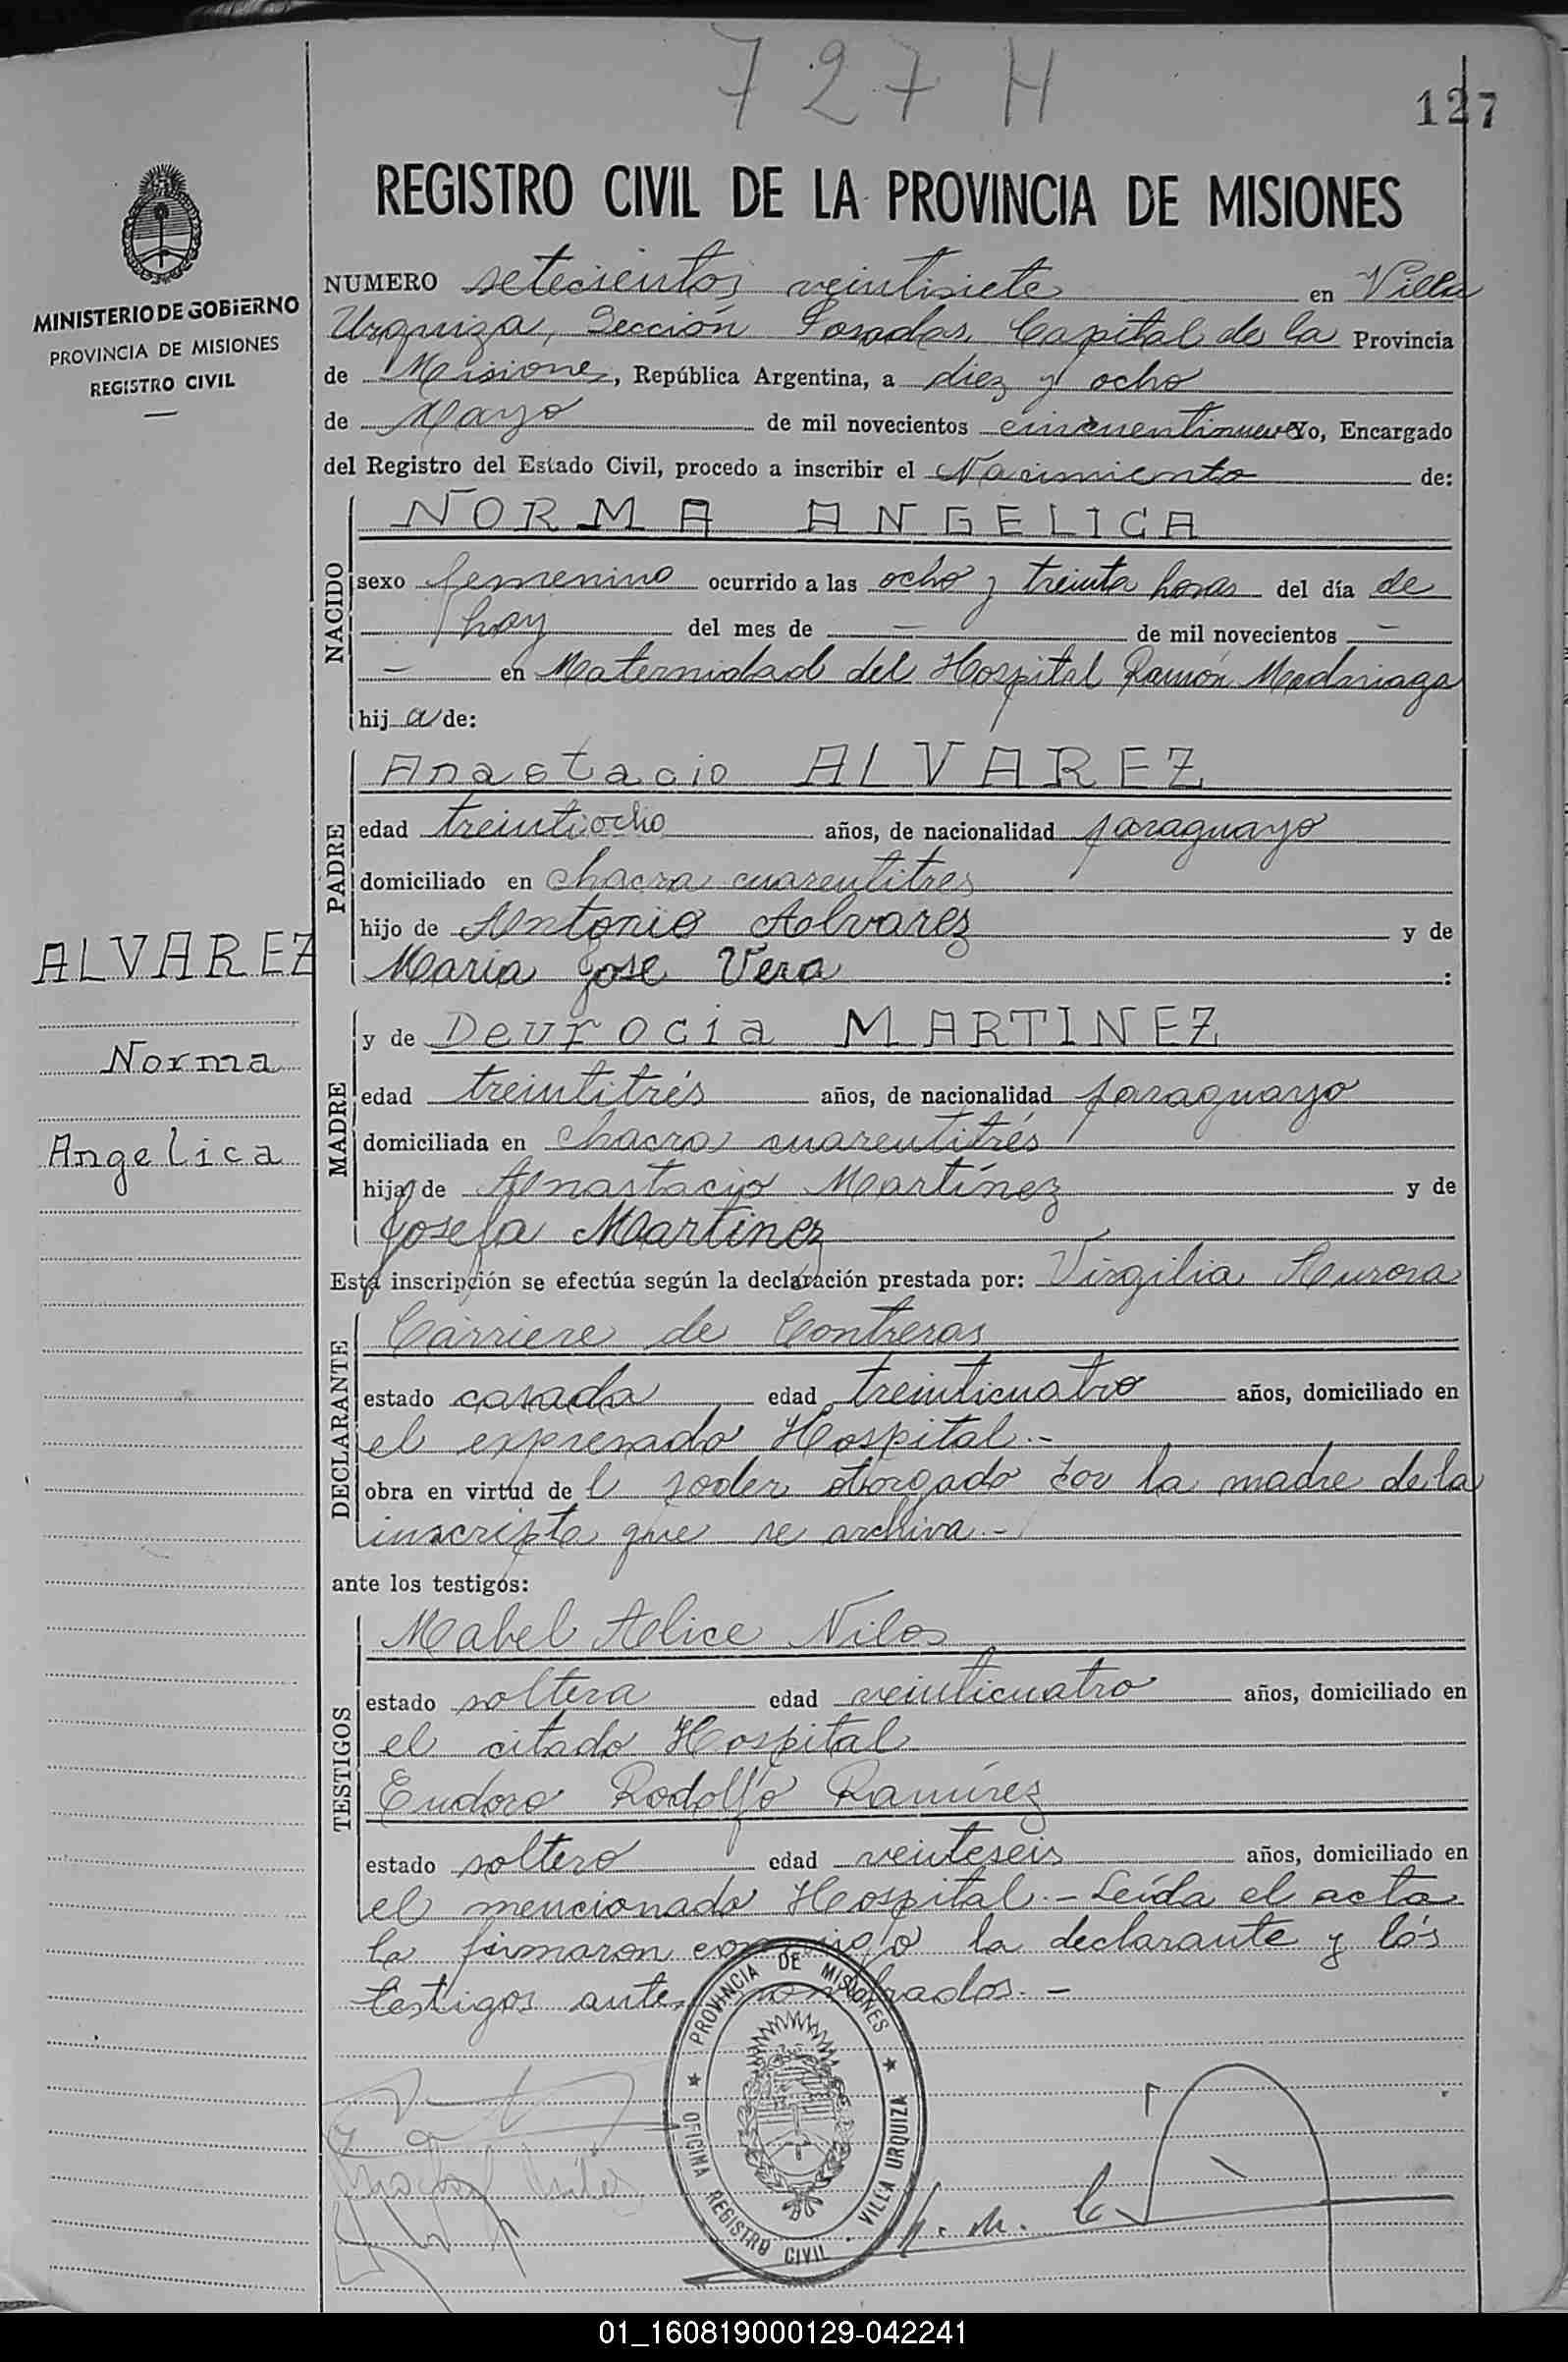 727 H
127
MINISTERIO DE GOBIERNO
PROVINCIA DE MISIONES
REGISTRO CIVIL
ALVAREZ
Norma
Angelica
REGISTRO CIVIL DE LA PROVINCIA DE MISIONES
NUMERO setecientos veintisiete en Villa
Urquiza, Sección Posadas, Capital de la Provincia
de Misiones, República Argentina, a diez y ocho
de Mayo de mil novecientos cincuentinueve Yo, Encargado
del Registro del Estado Civil, procedo a inscribir el Nacimiento de:
NACIDO
NORMA ANGELICA
sexo femenino ocurrido a las ocho y treinta horas del día de
hoy del mes de - de mil novecientos -
- en Maternidad del Hospital Ramón Madariaga
hija de:
PADRE
Anastacio ALVAREZ
edad treintiocho años, de nacionalidad paraguayo
domiciliado en chacra cuarentitres
hijo de Antonio Alvarez y de
Maria Jose Vera :
MADRE
y de Deurocia MARTINEZ
edad treintitrés años, de nacionalidad paraguayo
domiciliada en chacra cuarentitrés
hija de Anastacio Martínez y de
Josefa Martinez
Esta inscripción se efectúa según la declaración prestada por: Virgilia Aurora
DECLARANTE
Carriere de Contreras
estado casada edad treinticuatro años, domiciliado en
el expresado Hospital.-
obra en virtud del poder otorgado por la madre de la
inscripta que se archiva.-
ante los testigos:
TESTIGOS
Mabel Alice Nilos
estado soltera edad veinticuatro años, domiciliado en
el citado Hospital
Eudoro Rodolfo Ramírez
estado soltero edad veinteseis años, domiciliado en
el mencionado Hospital.- Leída el acta
la firmaron conmigo la declarante y los
testigos antes nombrados.-
PROVINCIA DE MISIONES
OFICINA REGISTRO CIVIL · VILLA URQUIZA
01_160819000129-042241